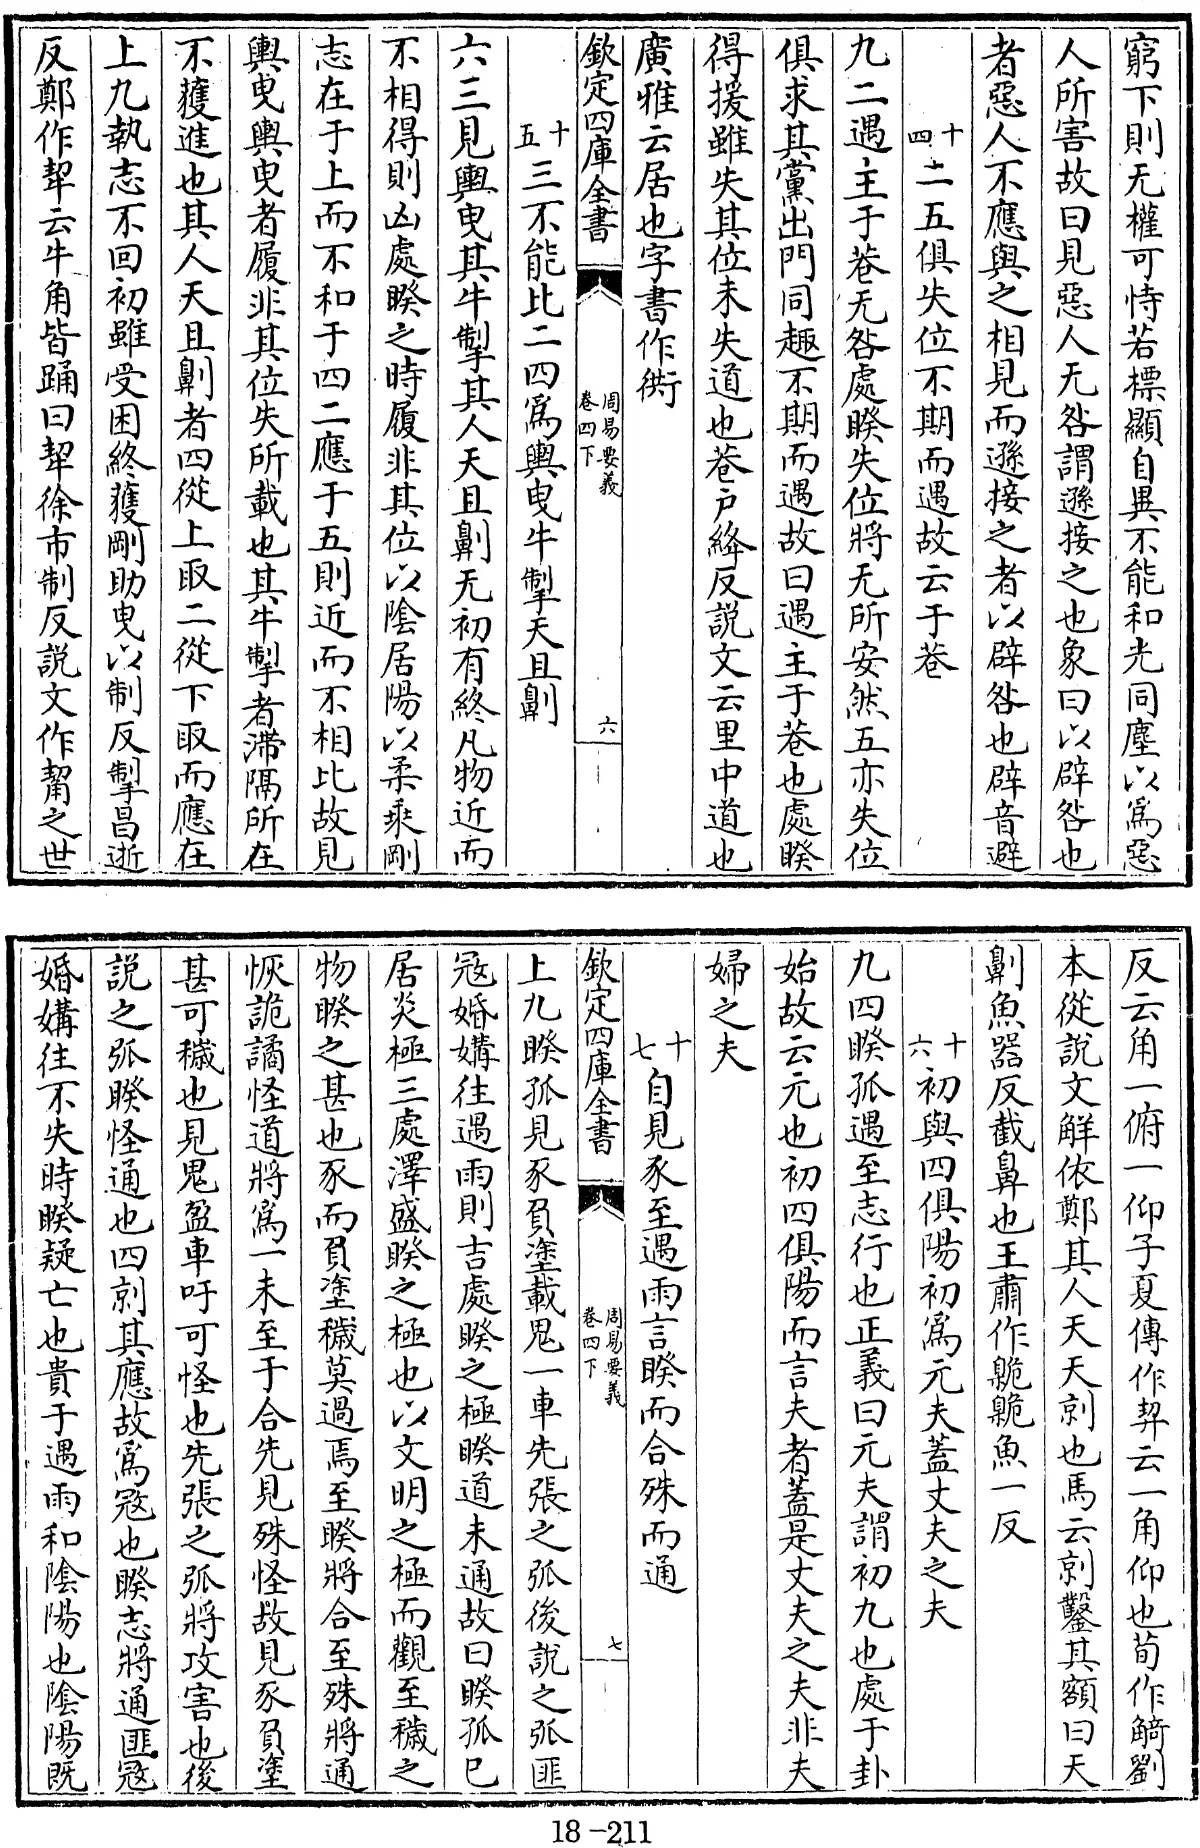 窮下則无權可恃若標顯自異不能和光同塵以爲惡
人所害故曰見惡人无咎謂遜接之也象曰以辟咎也
者惡人不應與之相見而遜接之者以辟咎也辟音避
十四二五俱失位不期而遇故云于巷
九二遇主于巷无咎處睽失位將无所安然五亦失位
俱求其黨出門同趣不期而遇故曰遇主于巷也處睽
得援雖失其位未失道也巷户絳反説文云里中道也
廣雅云居也字書作衖
欽定四庫全書
周易要義
卷四下
六
十五三不能比二四爲輿曳牛掣天且劓
六三見輿曳其牛掣其人天且劓无初有終凡物近而
不相得則凶處睽之時履非其位以陰居陽以柔乘剛
志在于上而不和于四二應于五則近而不相比故見
輿曳輿曳者履非其位失所載也其牛掣者滯隔所在
不獲進也其人天且劓者四從上取二從下取而應在
上九執志不回初雖受困終獲剛助曳以制反掣昌逝
反鄭作犎云牛角皆踊曰犎徐市制反説文作觢之世
反云角一俯一仰子夏傳作契云一角仰也荀作觭劉
本從説文解依鄭其人天天剠也馬云剠鑿其額曰天
劓魚器反截鼻也王肅作臲臲魚一反
十六初與四俱陽初爲元夫蓋丈夫之夫
九四睽孤遇至志行也正義曰元夫謂初九也處于卦
始故云元也初四俱陽而言夫者蓋是丈夫之夫非夫
婦之夫
十七自見豕至遇雨言睽而合殊而通
欽定四庫全書
周易要義
卷四下
七
上九睽孤見豕負塗載鬼一車先張之弧後説之弧匪
寇婚媾往遇雨則吉處睽之極睽道未通故曰睽孤已
居炎極三處澤盛睽之極也以文明之極而觀至穢之
物睽之甚也豕而負塗穢莫過焉至睽將合至殊將通
恢詭譎怪道將爲一未至于合先見殊怪故見豕負塗
甚可穢也見鬼盈車吁可怪也先張之弧將攻害也後
説之弧睽怪通也四剠其應故爲寇也睽志將通匪寇
婚媾往不失時睽疑亡也貴于遇雨和陰陽也陰陽既
18-211